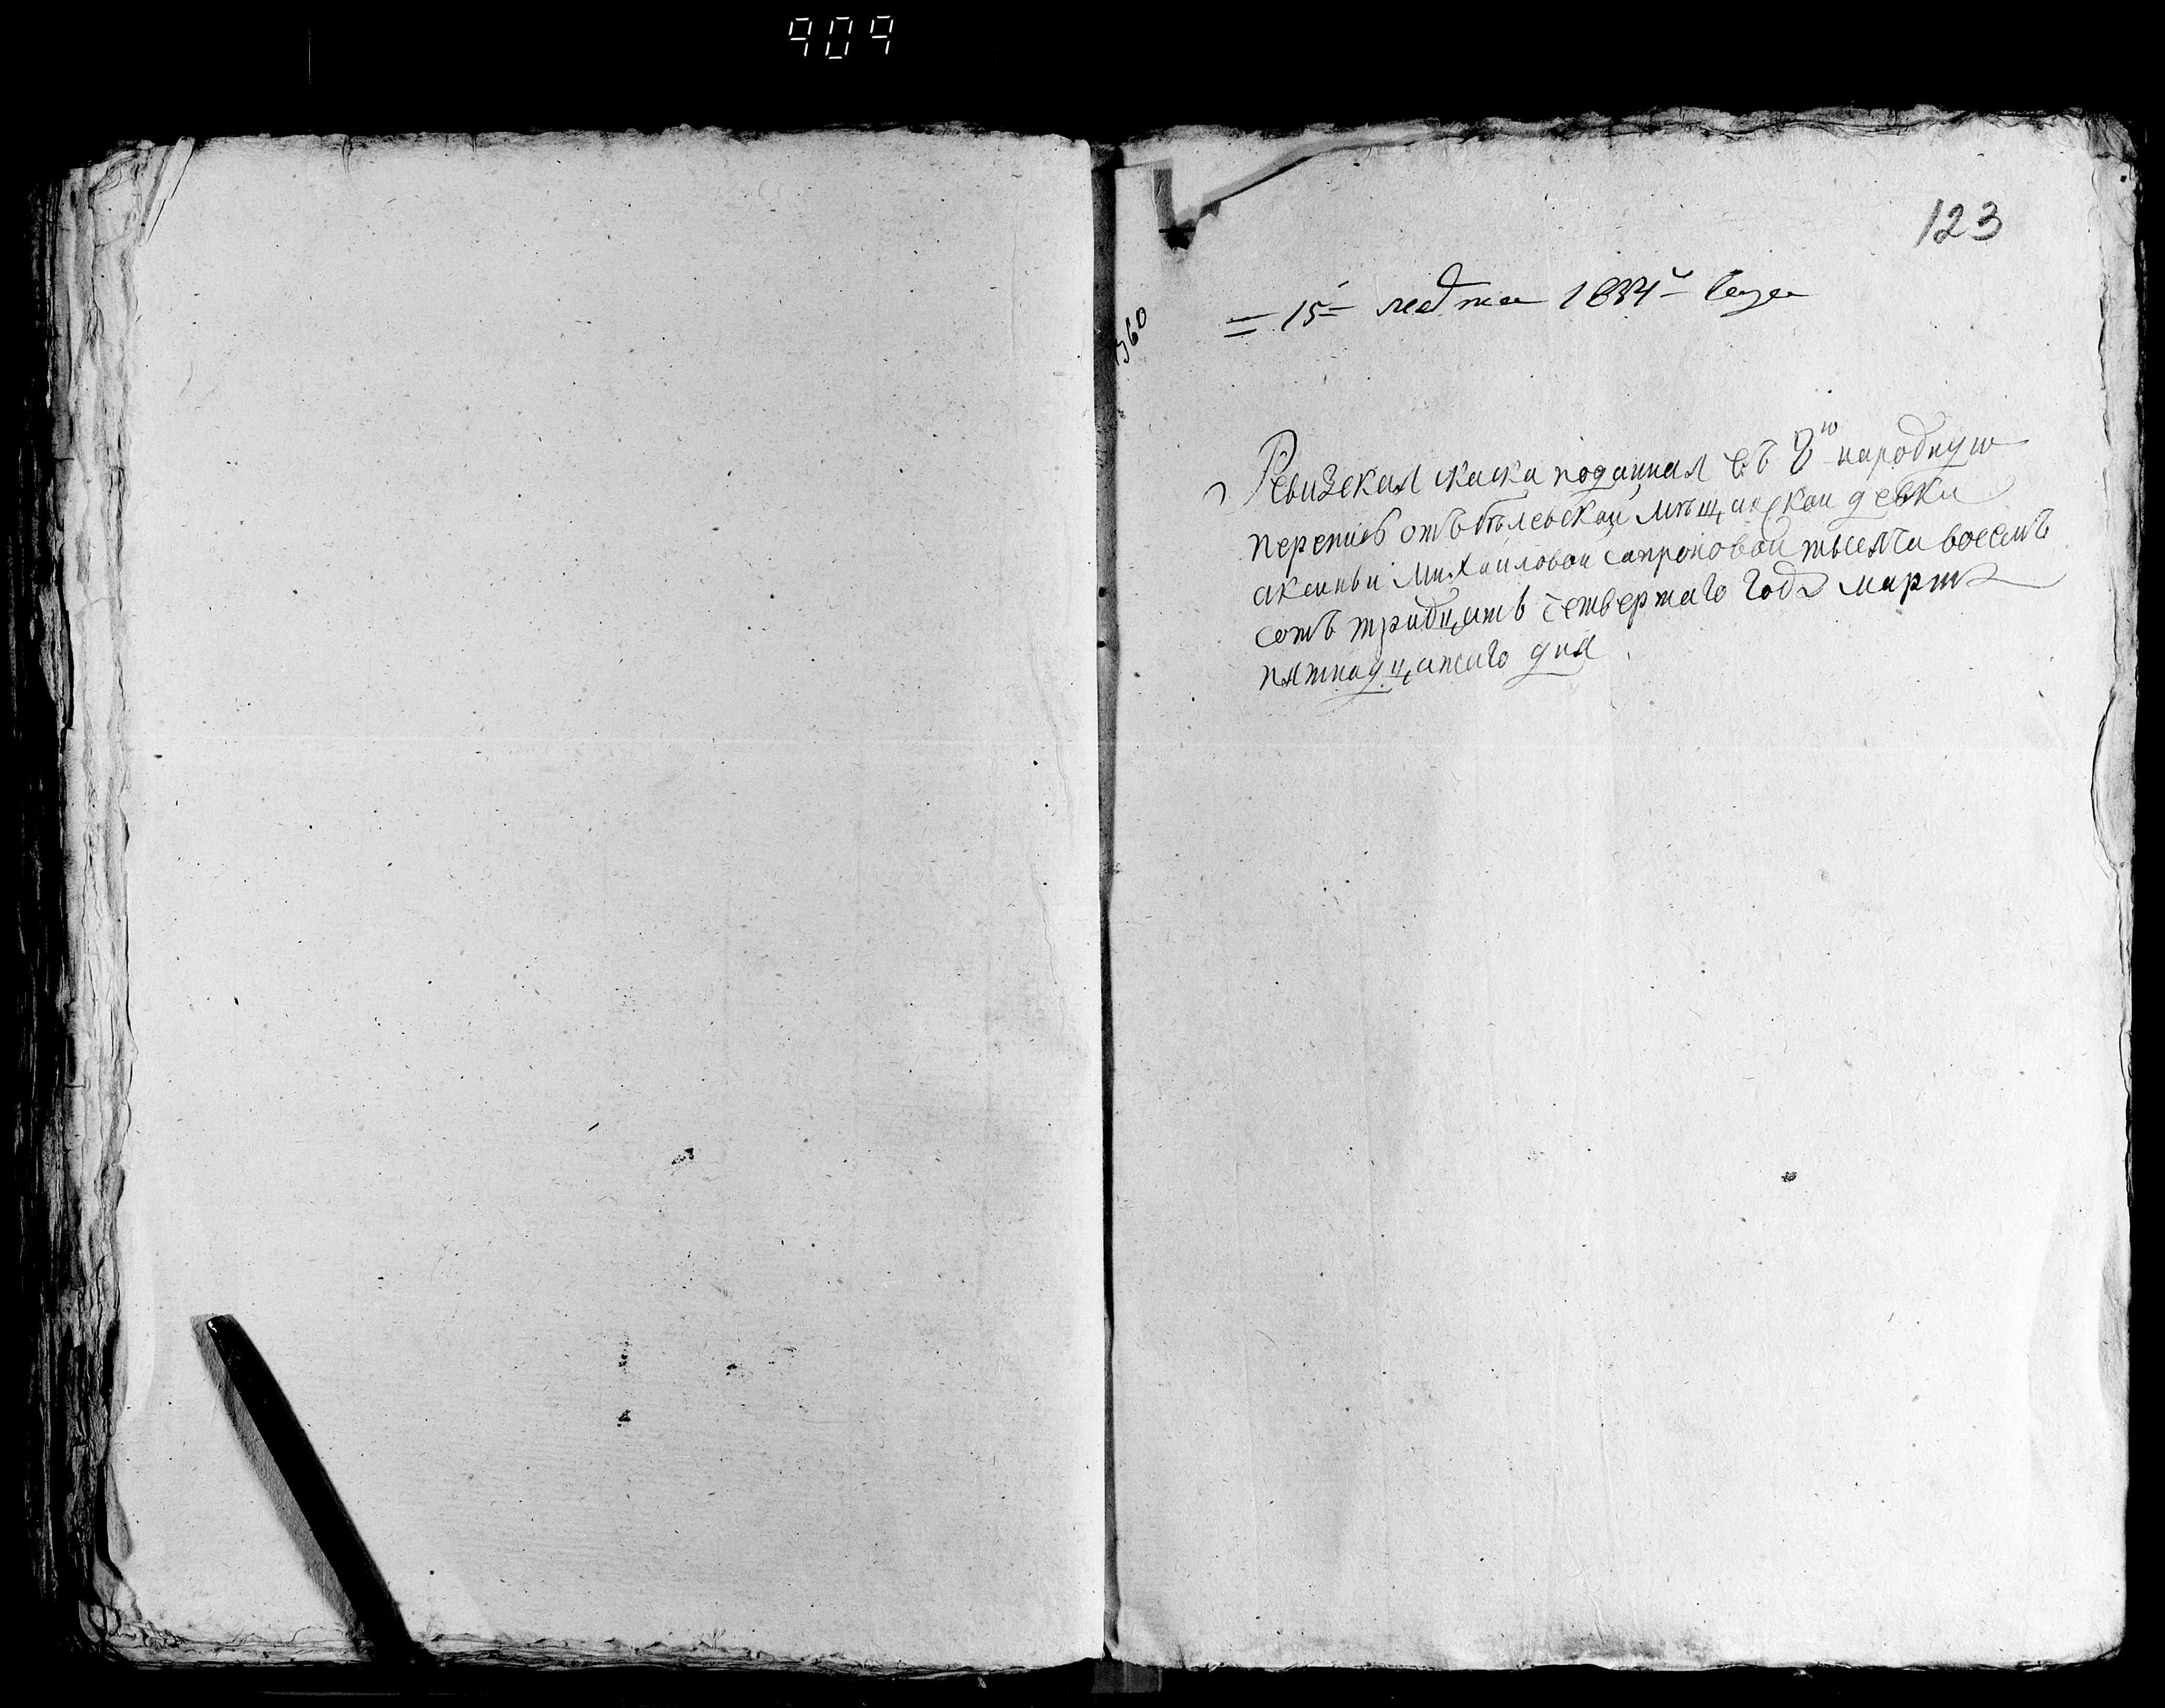 909
123
= 15 марта 1834 года
360
Ревизская скаска поданная въ 8ю народную
перепись отъ бѣлевской мѣщанской девки
аксиньи михайловой сапроновой тысеча восемъ
сотъ тридцать четвертаго года марта
пятнадцатаго дня